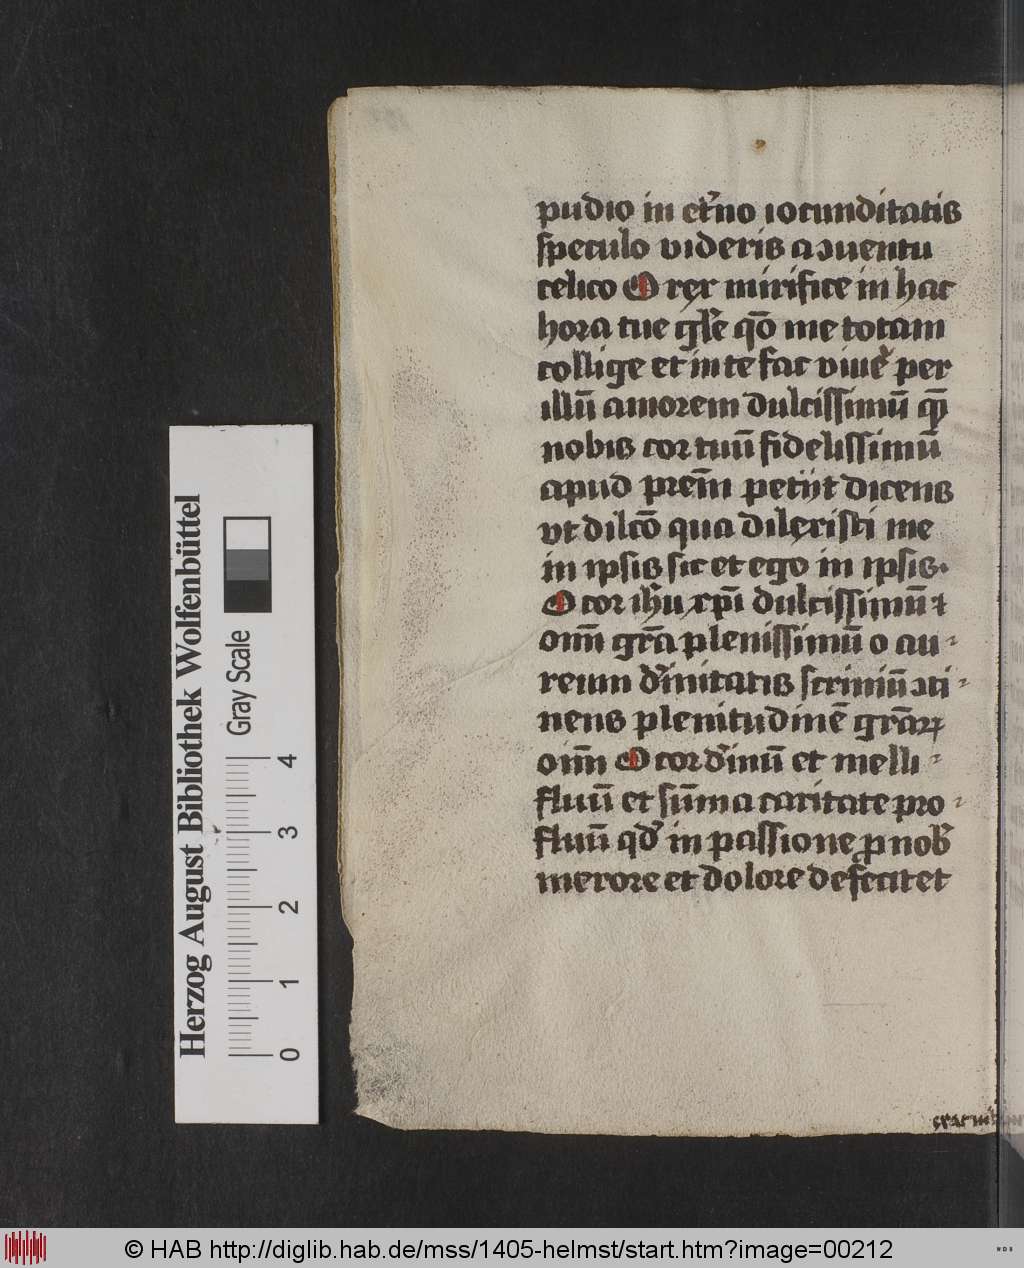 pudio in et̉no iocunditatis
speculo videris aↄuentu
celico O rex mirifice in hac
hora tue gl̉e qō me totam
collige et in te fac viuẻ per
illū amorem dulcissimū q̄
nobis cor tuū fidelissimū
apud prem̄ petijt dicens
vt dilcō qua dilexisti me
in ipsis sic et ego in ipsis.
O cor ihū xp̄i dulcissimū ⁊
om̄ gr̄a plenissimū o au-
reum diu̓initatis scriniū ↄti-
nens plenitudinē gr̄aꝝ
oīm̄ O cor diu̓inū et melli-
fluū et sūma caritate pro-
fluū qd̓ in passione ꝓ nob̓
merore et dolore defecit et
Herzog August Bibliothek Wolfenbüttel
Gray Scale
0 1 2 3 4
© HAB http://diglib.hab.de/mss/1405-helmst/start.htm?image=00212